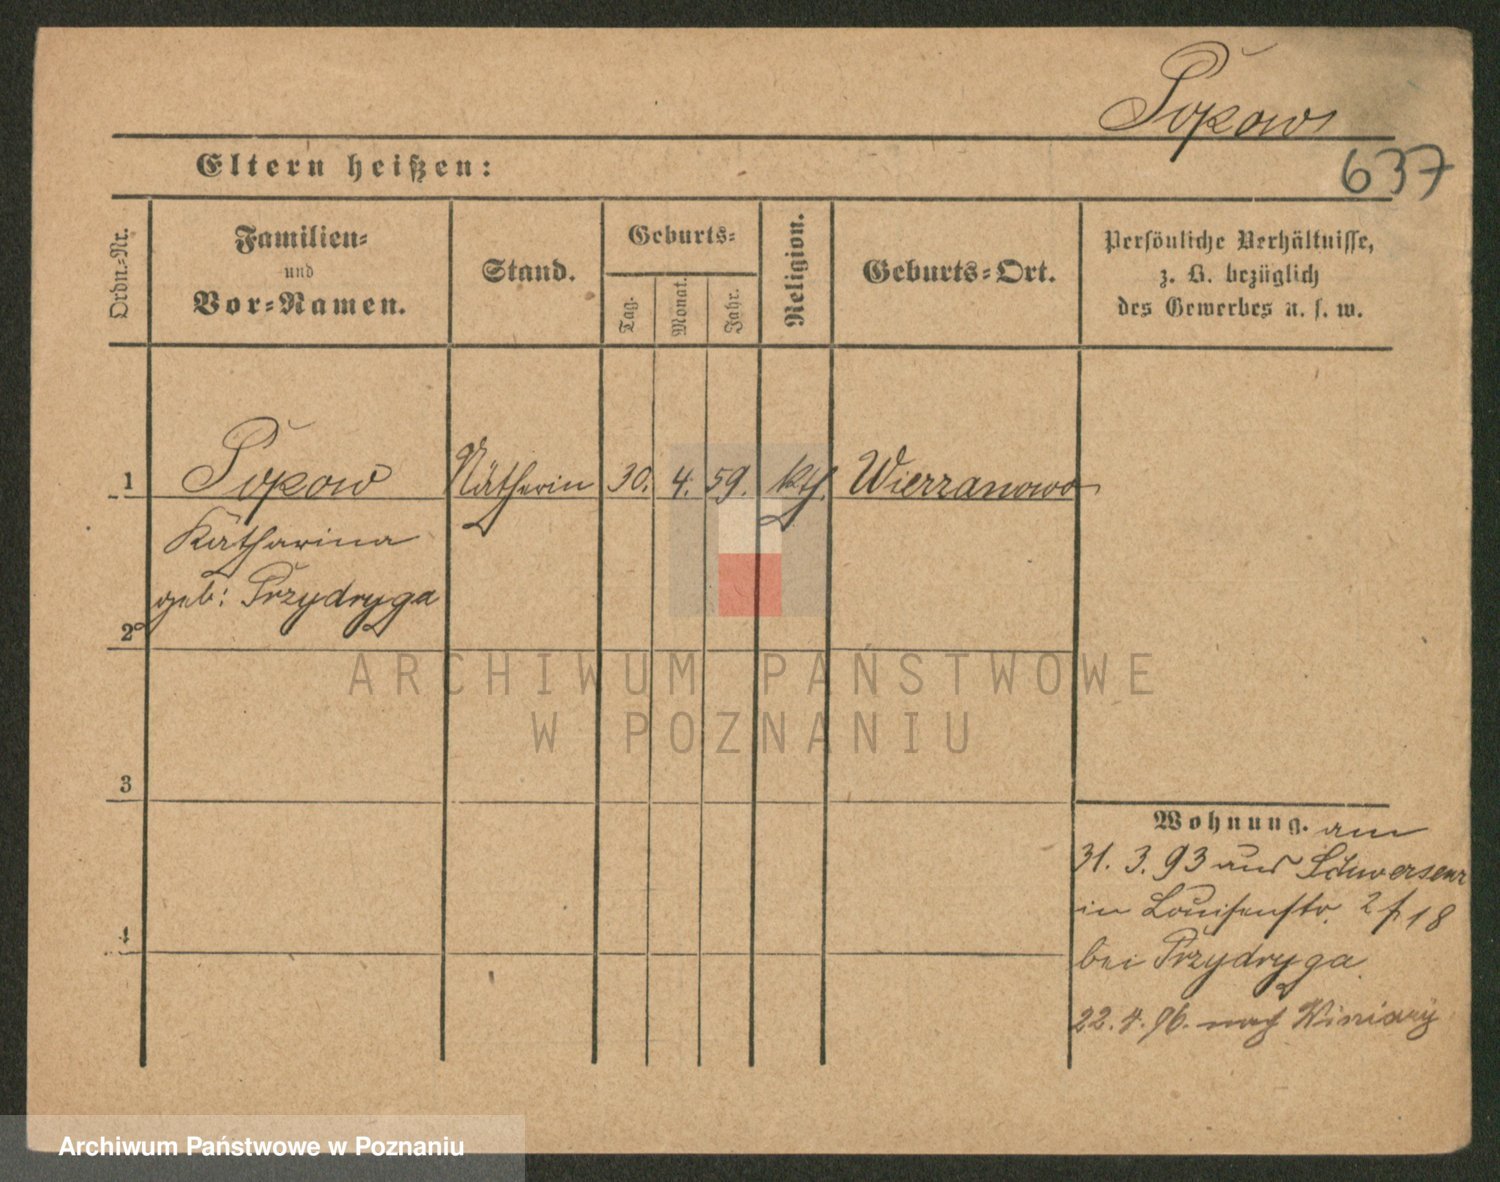 Popow
637
Eltern heißen:
Ordn.-Nr.
Familien-
und
Vor-Namen.
Stand.
Geburts-
Tag.
Monat.
Jahr.
Religion.
Geburts-Ort.
Persönliche Verhältnisse,
z. B. bezüglich
des Gewerbes u. s. w.
1 Popow Nätherin 30. 4. 59. kth. Wierzanowo
Katharina
geb: Przydryga
2
3
4
Wohnung. am
31. 3. 93 aus Schwersenz
in Louisenstr. 18
bei Przydryga
22. 4. 96. nach Winiary
ARCHIWUM PAŃSTWOWE
W POZNANIU
Archiwum Państwowe w Poznaniu